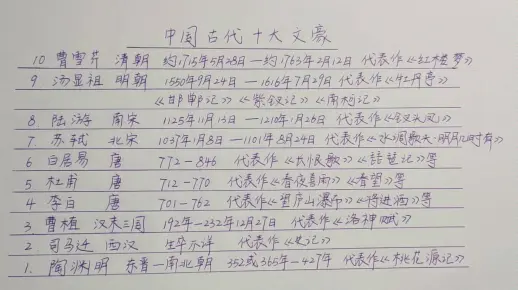 中国古代十大文豪
10 曹雪芹 清朝 约1715年5月28日—约1763年2月12日 代表作《红楼梦》
9 汤显祖 明朝 1550年9月24日—1616年7月29日 代表作《牡丹亭》
《邯郸记》《紫钗记》《南柯记》
8 陆游 南宋 1125年11月13日—1210年1月26日 代表作《钗头凤》
7. 苏轼 北宋 1037年1月8日—1101年8月24日 代表作《水调歌头·明月几时有》
6 白居易 唐 772—846 代表作《长恨歌》《琵琶记》等
5 杜甫 唐 712—770 代表作《春夜喜雨》《春望》等
4 李白 唐 701—762 代表作《望庐山瀑布》《将进酒》等
3 曹植 汉末三国 192年—232年12月27日 代表作《洛神赋》
2. 司马迁 西汉 生卒不详 代表作《史记》
1. 陶渊明 东晋—南北朝 352或365年—427年 代表作《桃花源记》